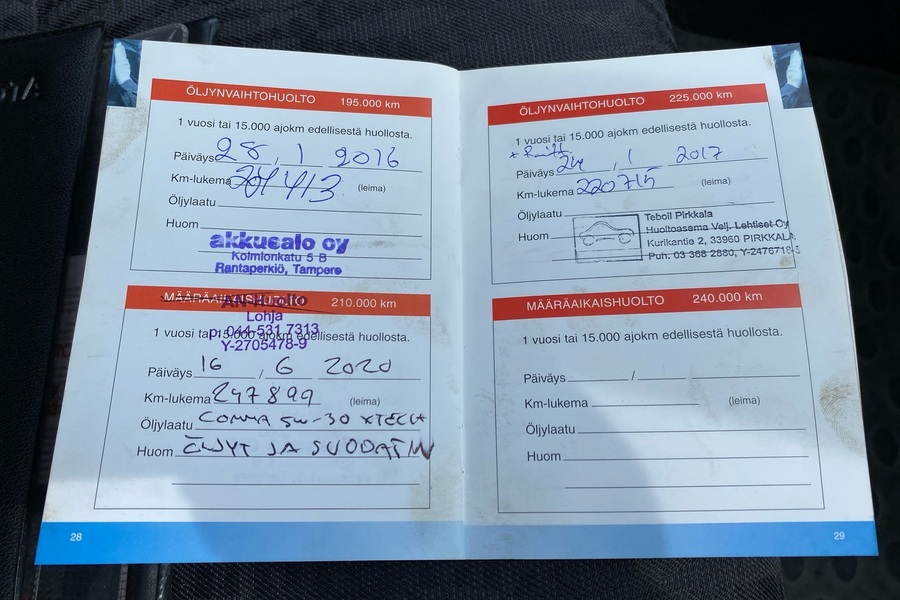 ÖLJYNVAIHTOHUOLTO 195.000 km
1 vuosi tai 15.000 ajokm edellisestä huollosta.
Päiväys 28 / 1 2016
Km-lukema (leima)
Öljylaatu
Huom
akkusalo oy
Kolmionkatu 5 B
Rantaperkiö, Tampere
MÄÄRÄAIKAISHUOLTO 210.000 km
Lohja
p. 044-531 7313
1 vuosi tai 15.000 ajokm edellisestä huollosta.
Y-2705478-9
Päiväys 16 / 6 2020
Km-lukema 247899 (leima)
Öljylaatu COMMA 5W-30 XTECH
Huom JA SUODATIN
28
ÖLJYNVAIHTOHUOLTO 225.000 km
1 vuosi tai 15.000 ajokm edellisestä huollosta.
Päiväys 24 / 1 2017
Km-lukema 220715 (leima)
Öljylaatu
Huom
Teboil Pirkkala
Huoltoasema Velj. Lehtiset Oy
Kurikantie 2, 33960 PIRKKALA
Puh. 03 368 2880, Y-2476718-5
MÄÄRÄAIKAISHUOLTO 240.000 km
1 vuosi tai 15.000 ajokm edellisestä huollosta.
Päiväys /
Km-lukema (leima)
Öljylaatu
Huom
29